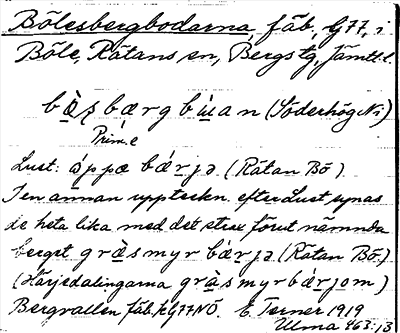 Bölesbergbodarna, fäb, G77, i
Böle, Rätans sn, Bergs tg, Jämtl. l.
bö̀ḷsbærgbùan (Söderhög Ni)
Prim. e
Lust: áppæ bǽrjə. (Rätan Bö)
I en annan uppteckn. efter Lust synas
de heta lika med det strax förut nämnda
berget gràsmyrbǽrjə. (Rätan Bö.)
(Härjedalingarna gràsmyrbǽrjom)
Bergvallen fäb. p G77NÖ. E. Torner 1919
Ulma 463:13